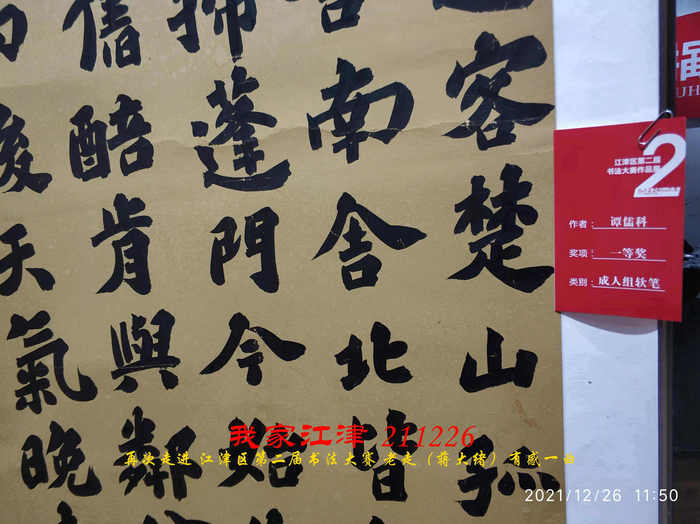 客楚山孤
南舍北皆
掃蓬門今始
醅肯與鄰
後天氣晚
江津区第二届
书法大赛作品展
2
作者：谭儒科
奖项：一等奖
类别：成人组软笔
我家江津 211226
再次走进 江津区第二届书法大赛 老走（蒋大绪）有感一由
2021/12/26 11:50